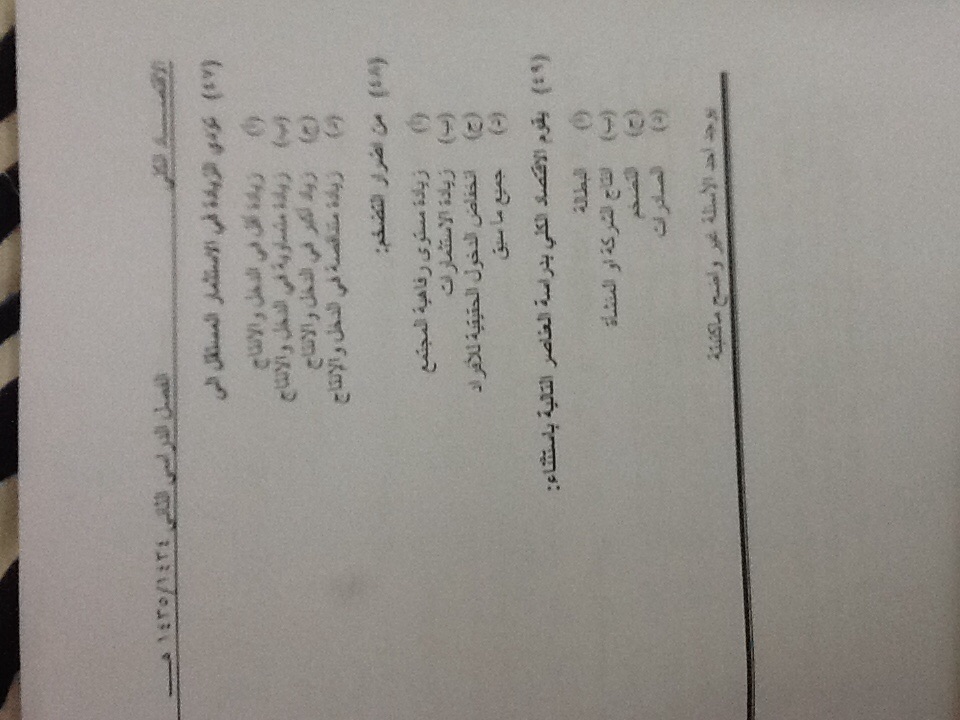 الاقتصاد الكلي الفصل الدراسي الثاني ١٤٣٥/١٤٣٤ هـ
(٤٧) تؤدي الزيادة في الاستثمار المستقل الى
(أ) زيادة أقل في الدخل والانتاج
(ب) زيادة متساوية في الدخل والانتاج
(ج) زيادة أكبر في الدخل والانتاج
(د) زيادة متناقصة في الدخل والانتاج
(٤٨) من اضرار التضخم:
(أ) زيادة مستوى رفاهية المجتمع
(ب) زيادة الاستثمارات
(ج) انخفاض الدخول الحقيقية للأفراد
(د) جميع ما سبق
(٤٩) يقوم الاقتصاد الكلي بدراسة العناصر التالية باستثناء:
(أ) البطالة
(ب) انتاج الشركة او المنشاة
(ج) التضخم
(د) الصادرات
يوجد احد الأسئلة غير واضح